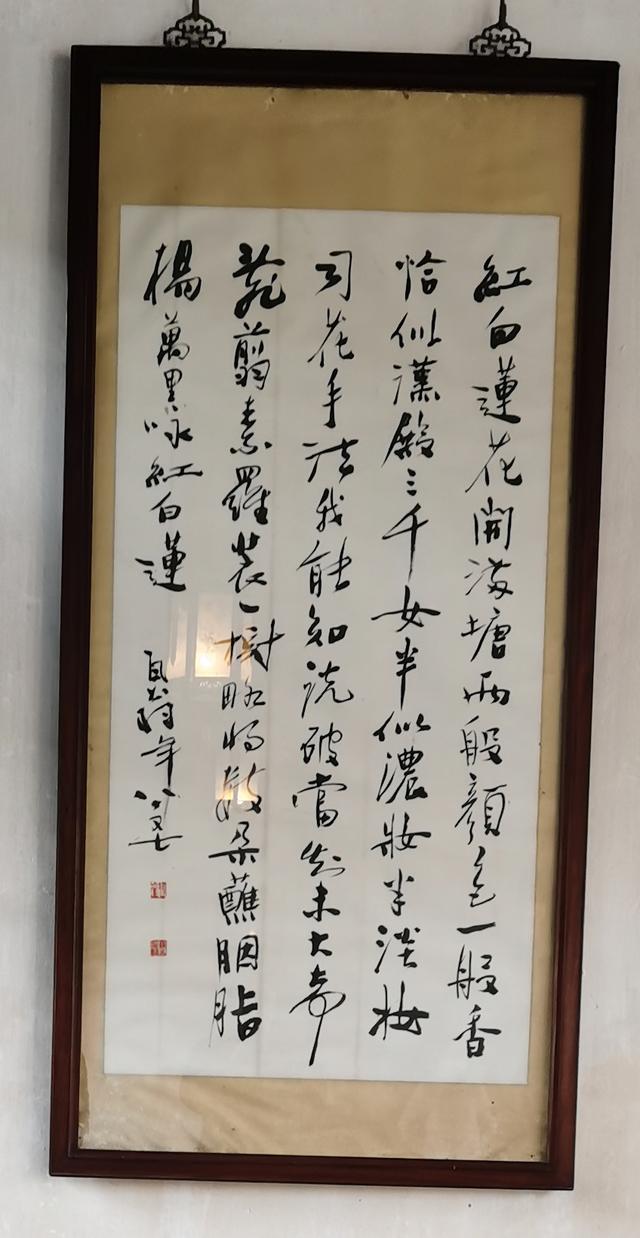 紅白蓮花開滿塘兩般顏色一般香
恰似漢殿三千女半似濃妝半淡妝
司花手法我能知說破當知未大奇
亂翦素羅裝一樹略將數朵蘸胭脂
楊萬里咏紅白蓮
時年八又七